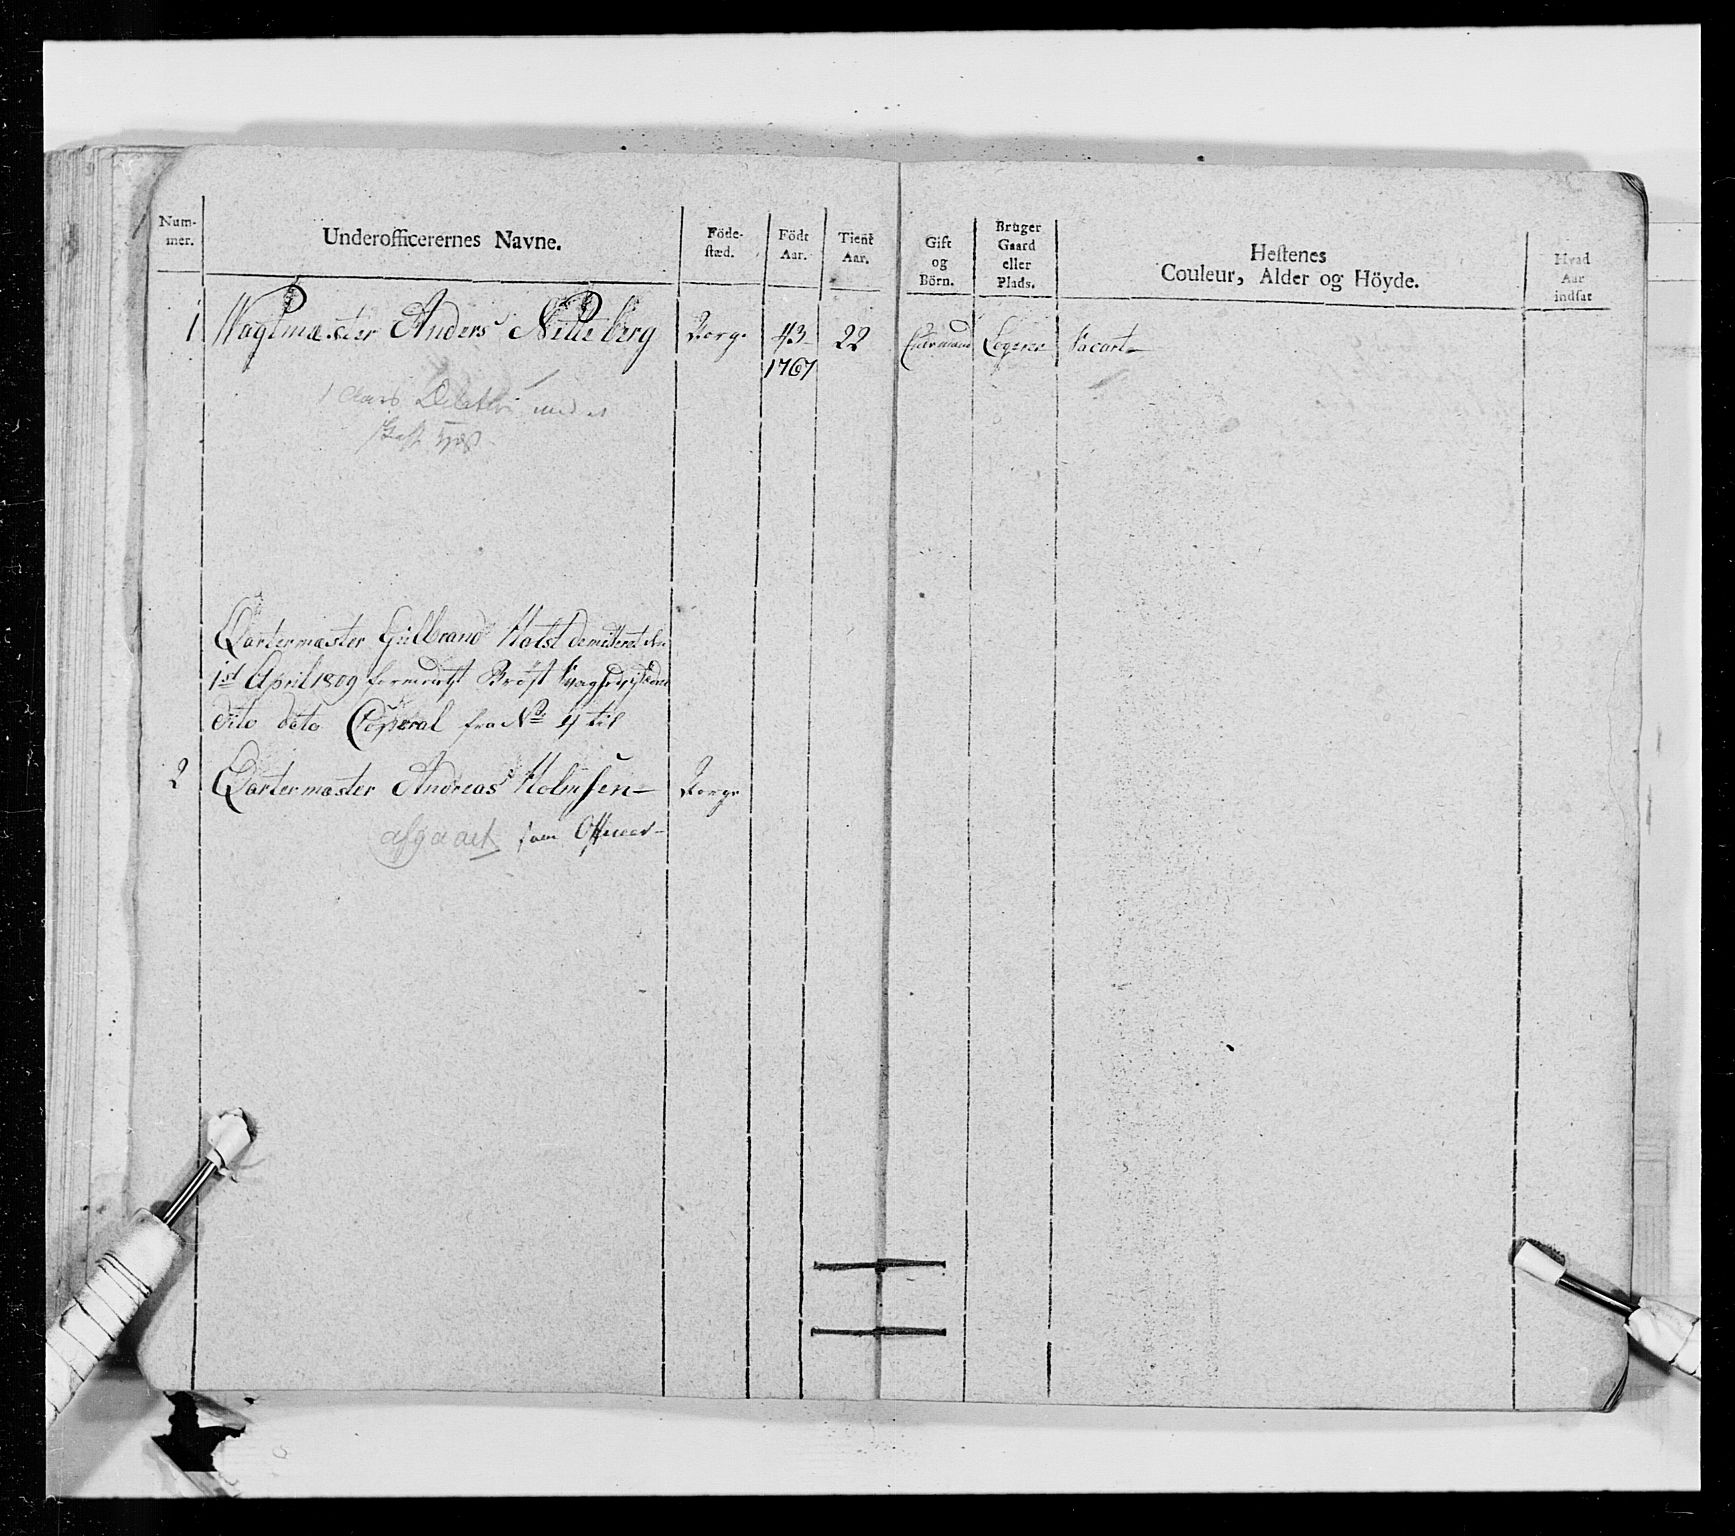 Num-
mer.
Underofficerernes Navne.
Föde-
stæd.
Födt
Aar.
Tient
Aar.
Gift
og
Börn.
Bruger
Gaard
eller
Plads.
Hestenes
Couleur, Alder og Höyde.
Hvad
Aar
indsat
1 Wagtmæster Anders Netteberg Norge 43 22 Logerer Vacant
1767
1 Aars
Qartermæster Gulbrand Holst demiteret den
1st April 1809
dito dato Coperal fra No 4 til
2 Qartermæster Andreas Holmsen Norge
afgaaet som Officeer